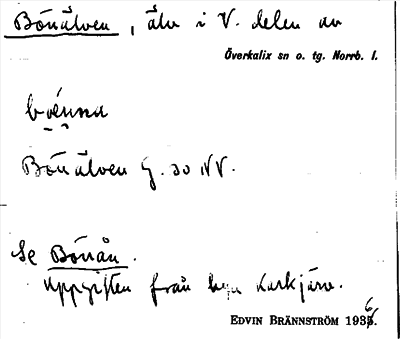 Bönälven, älv i V. delen av
Överkalix sn o. tg. Norrb. l.
Bönälven G. 30 NV.
Se Bönån.
Uppgiften från Karkjärv.
EDVIN BRÄNNSTRÖM 1936.